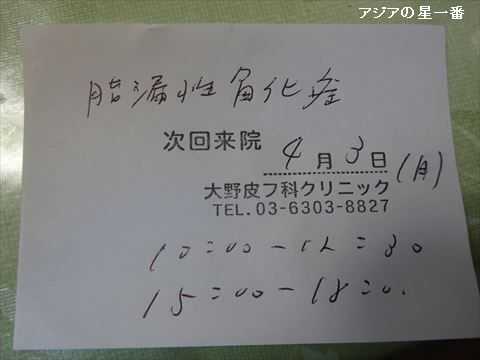 アジアの星一番
脂漏性角化症
次回来院 4月3日(月)
大野皮フ科クリニック
TEL. 03-6303-8827
10:00-12:30
15:00-18:00